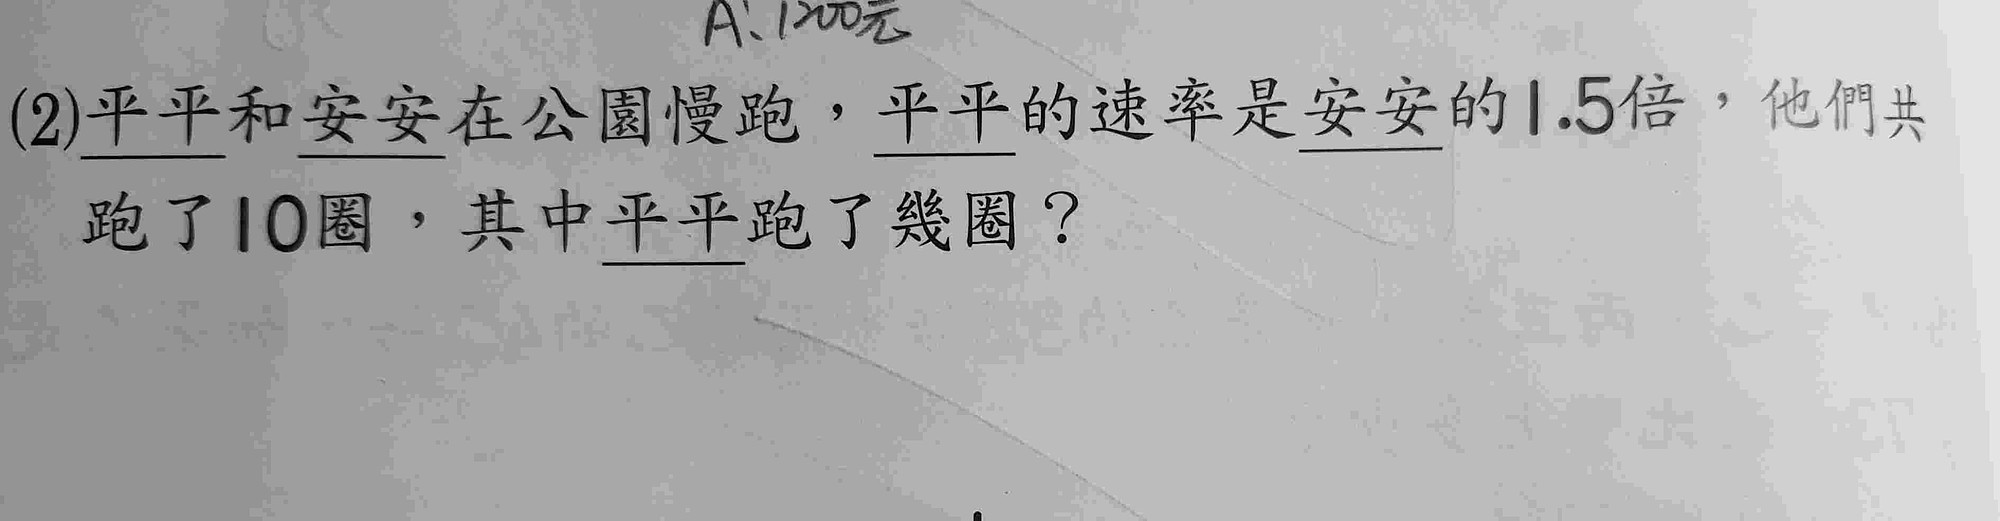 A: 1200元
(2)平平和安安在公園慢跑，平平的速率是安安的1.5倍，他們共
跑了10圈，其中平平跑了幾圈？